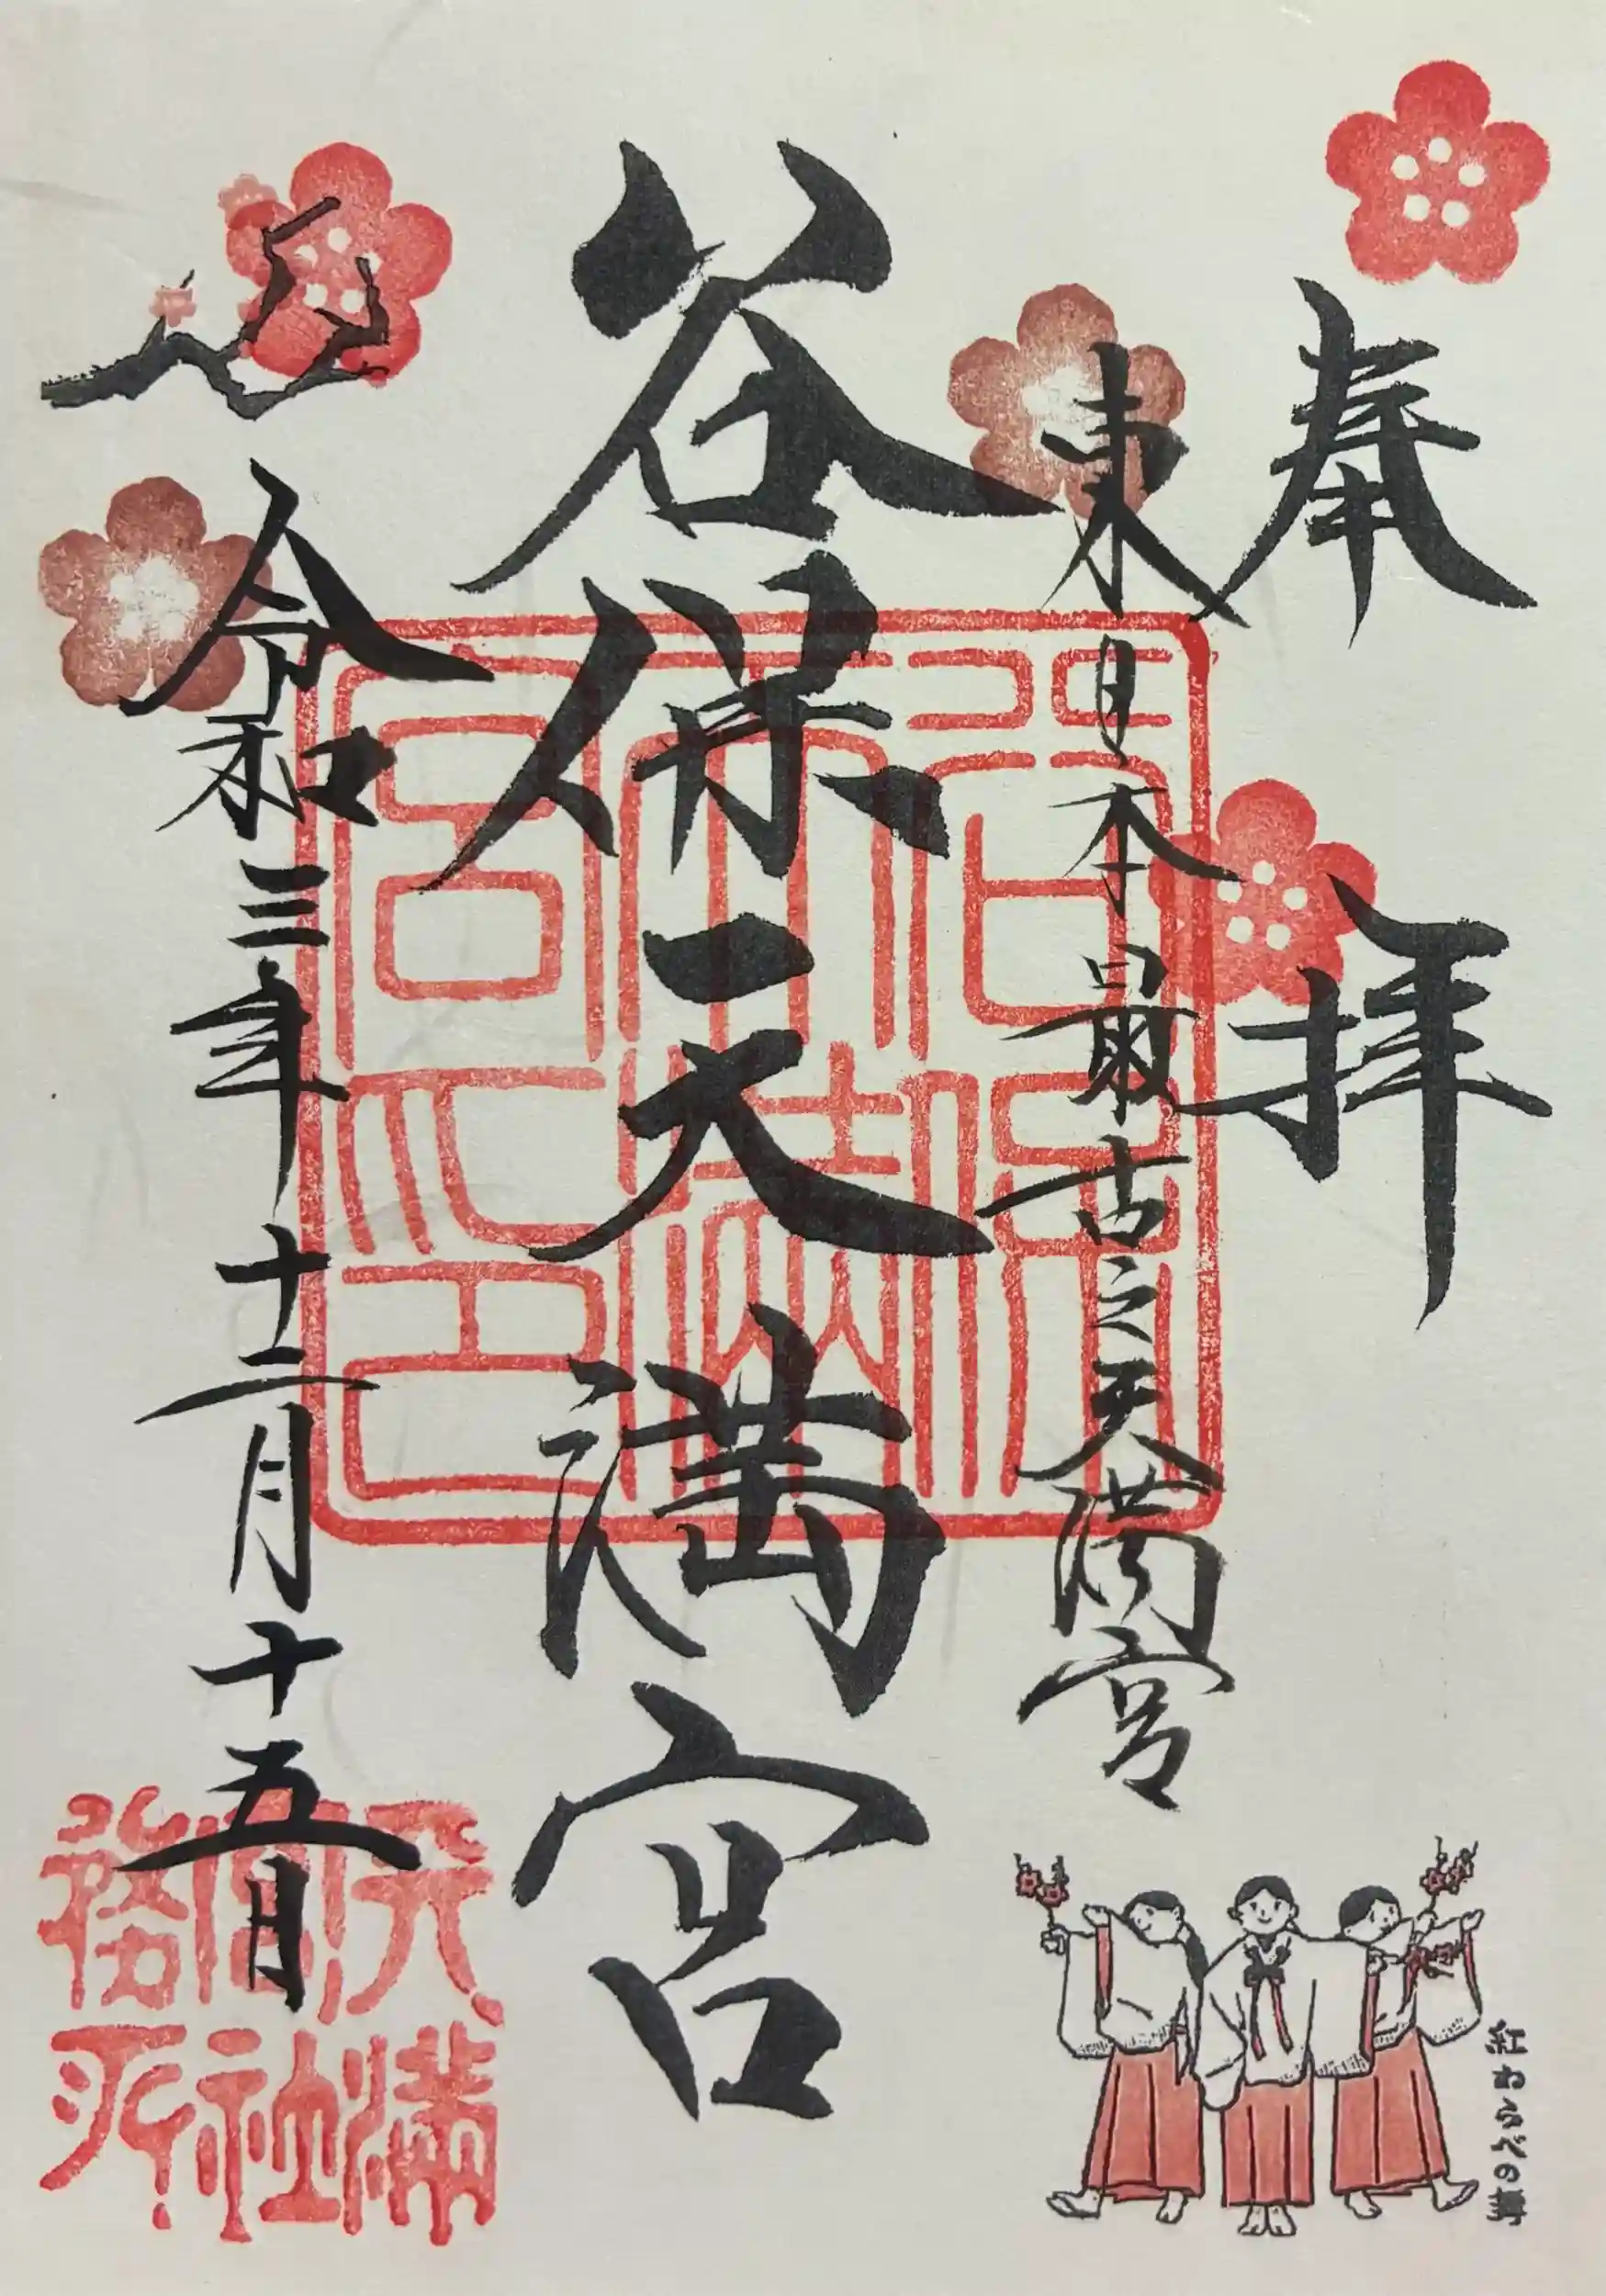 奉拝
東日本最古之天満宮
谷保天満宮
令和三年十二月十五日
紅わらべの舞
谷保天満宮之印
天満宮社務所